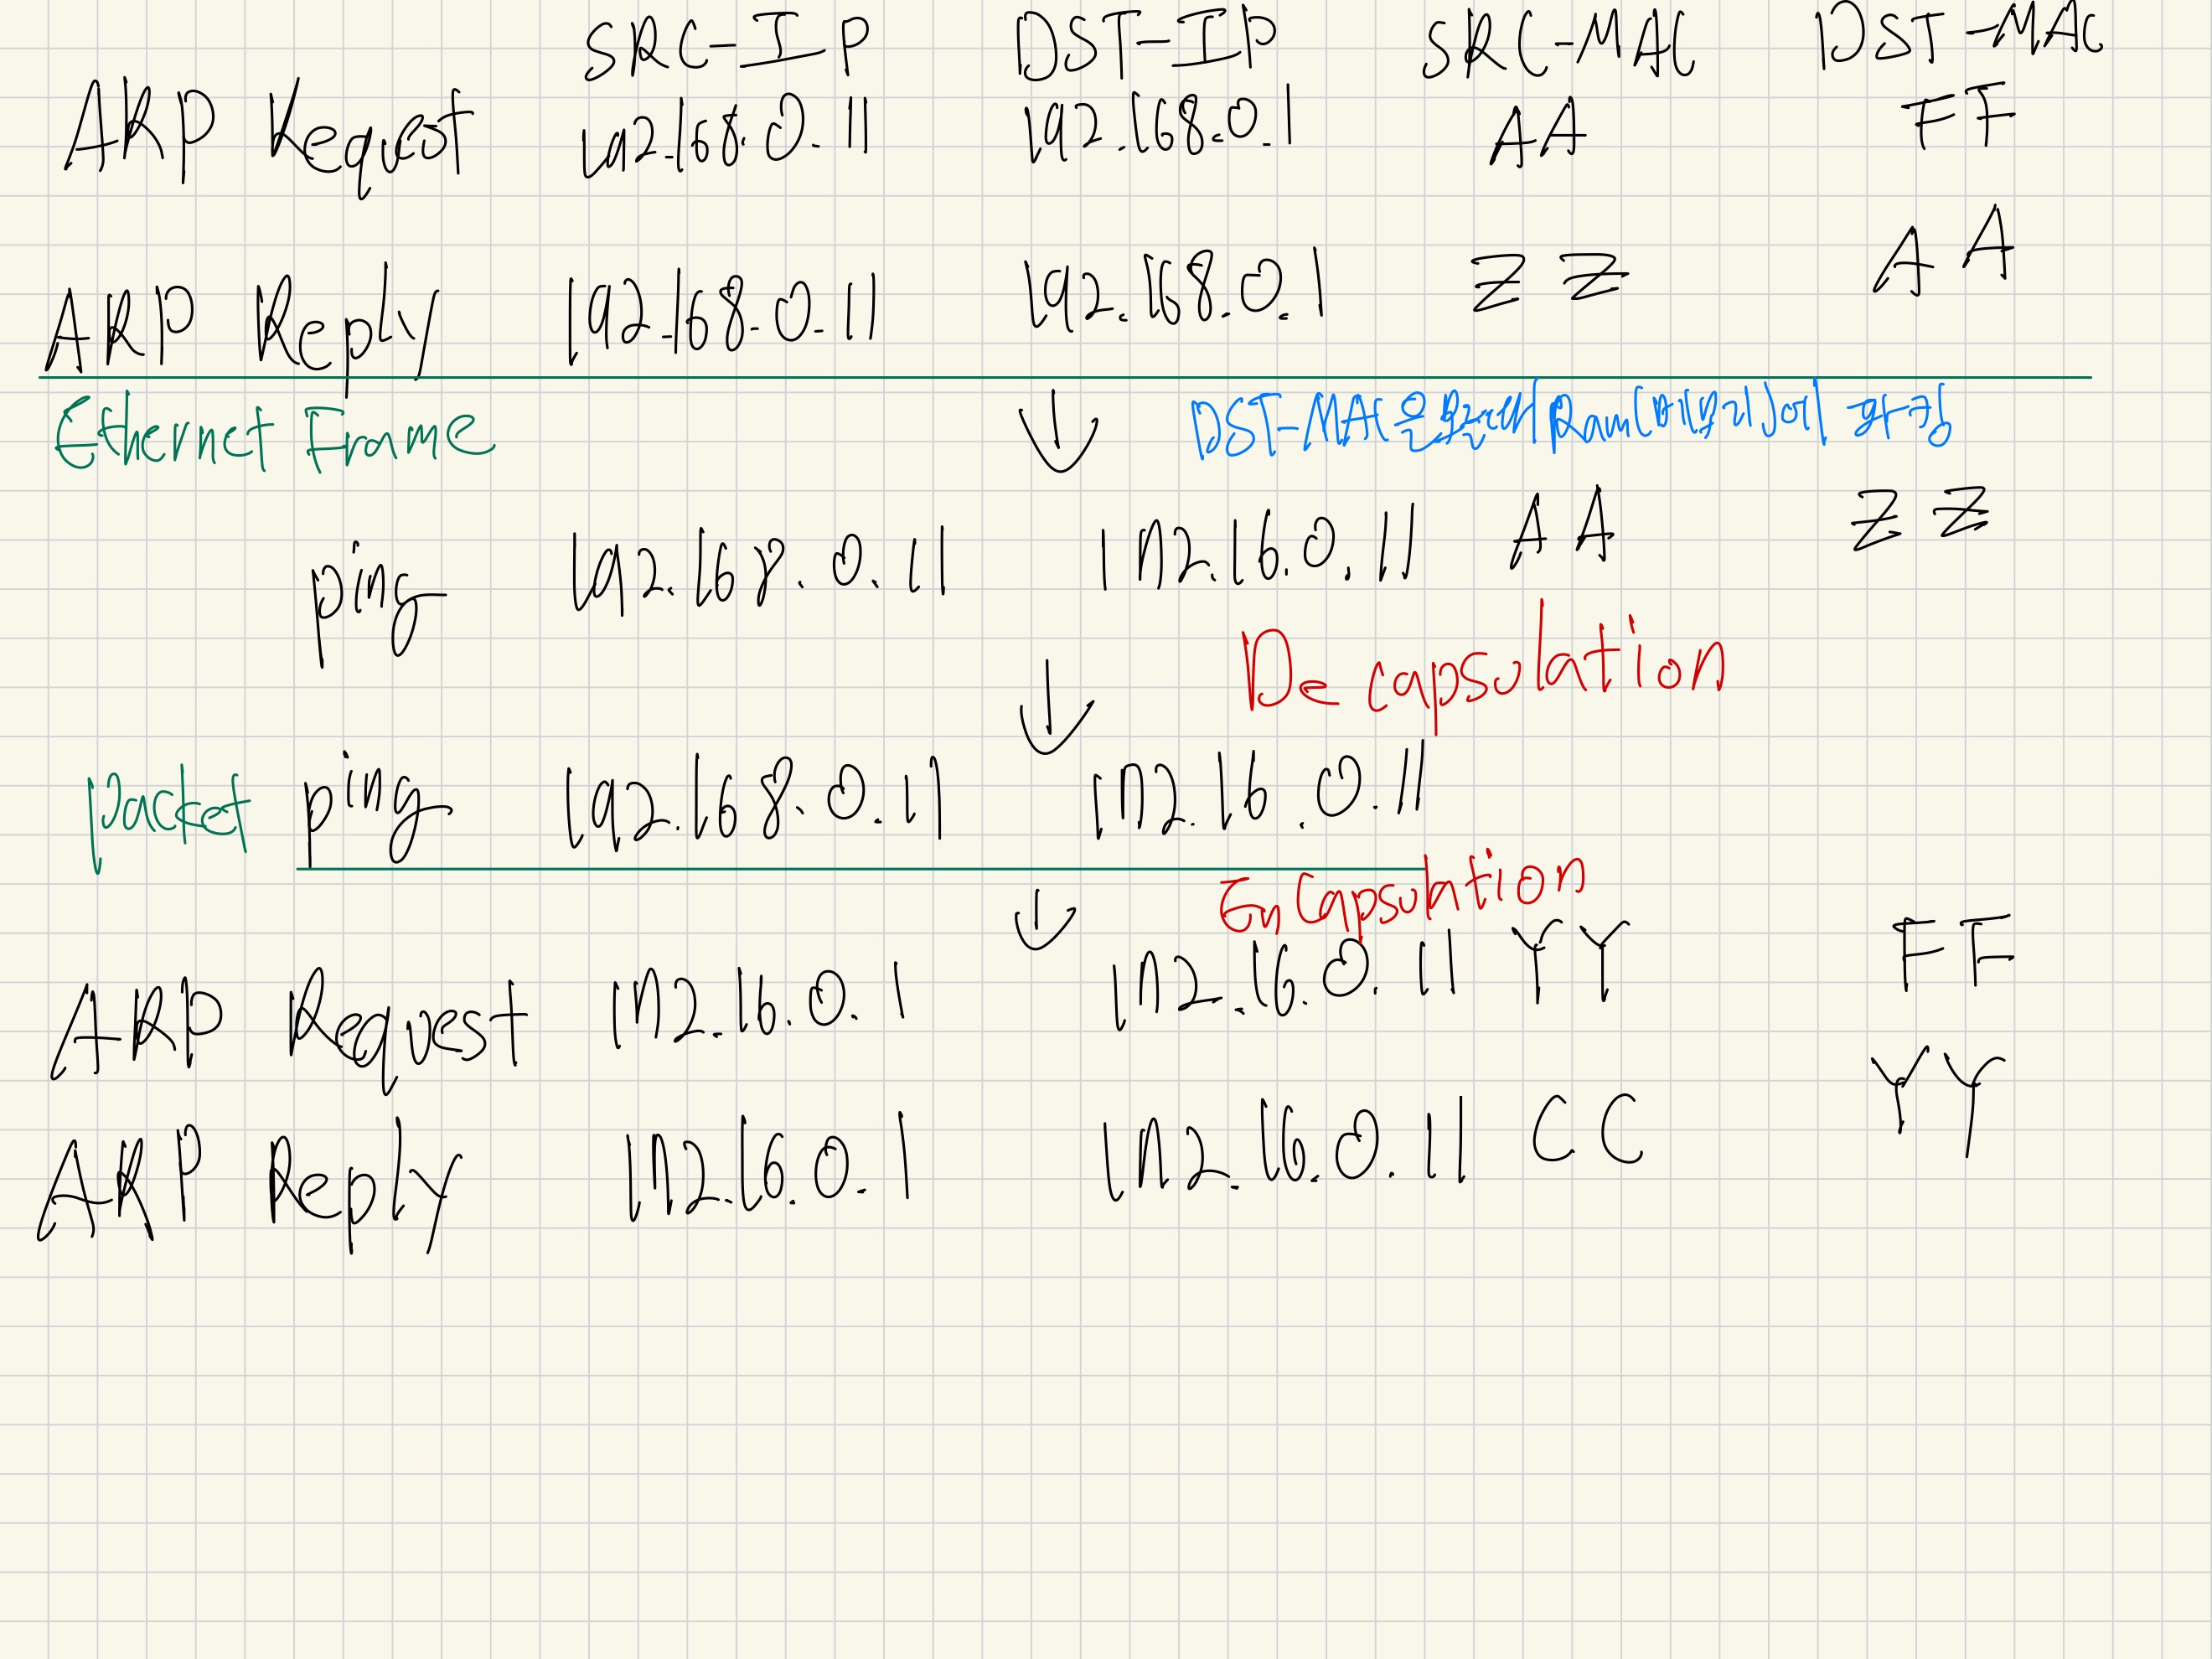 SRC-IP DST-IP SRC-MAC DST-MAC
ARP Request 192.168.0.11 192.168.0.1 AA FF
ARP Reply 192.168.0.11 192.168.0.1 ZZ AA
Ethernet Frame DST-MAC Ram(메모리)에
ping 192.168.0.11 172.16.0.11 AA ZZ
Decapsulation
packet ping 192.168.0.11 172.16.0.11
EnCapsulation
ARP Request 172.16.0.1 172.16.0.11 YY FF
ARP Reply 172.16.0.1 172.16.0.11 CC YY